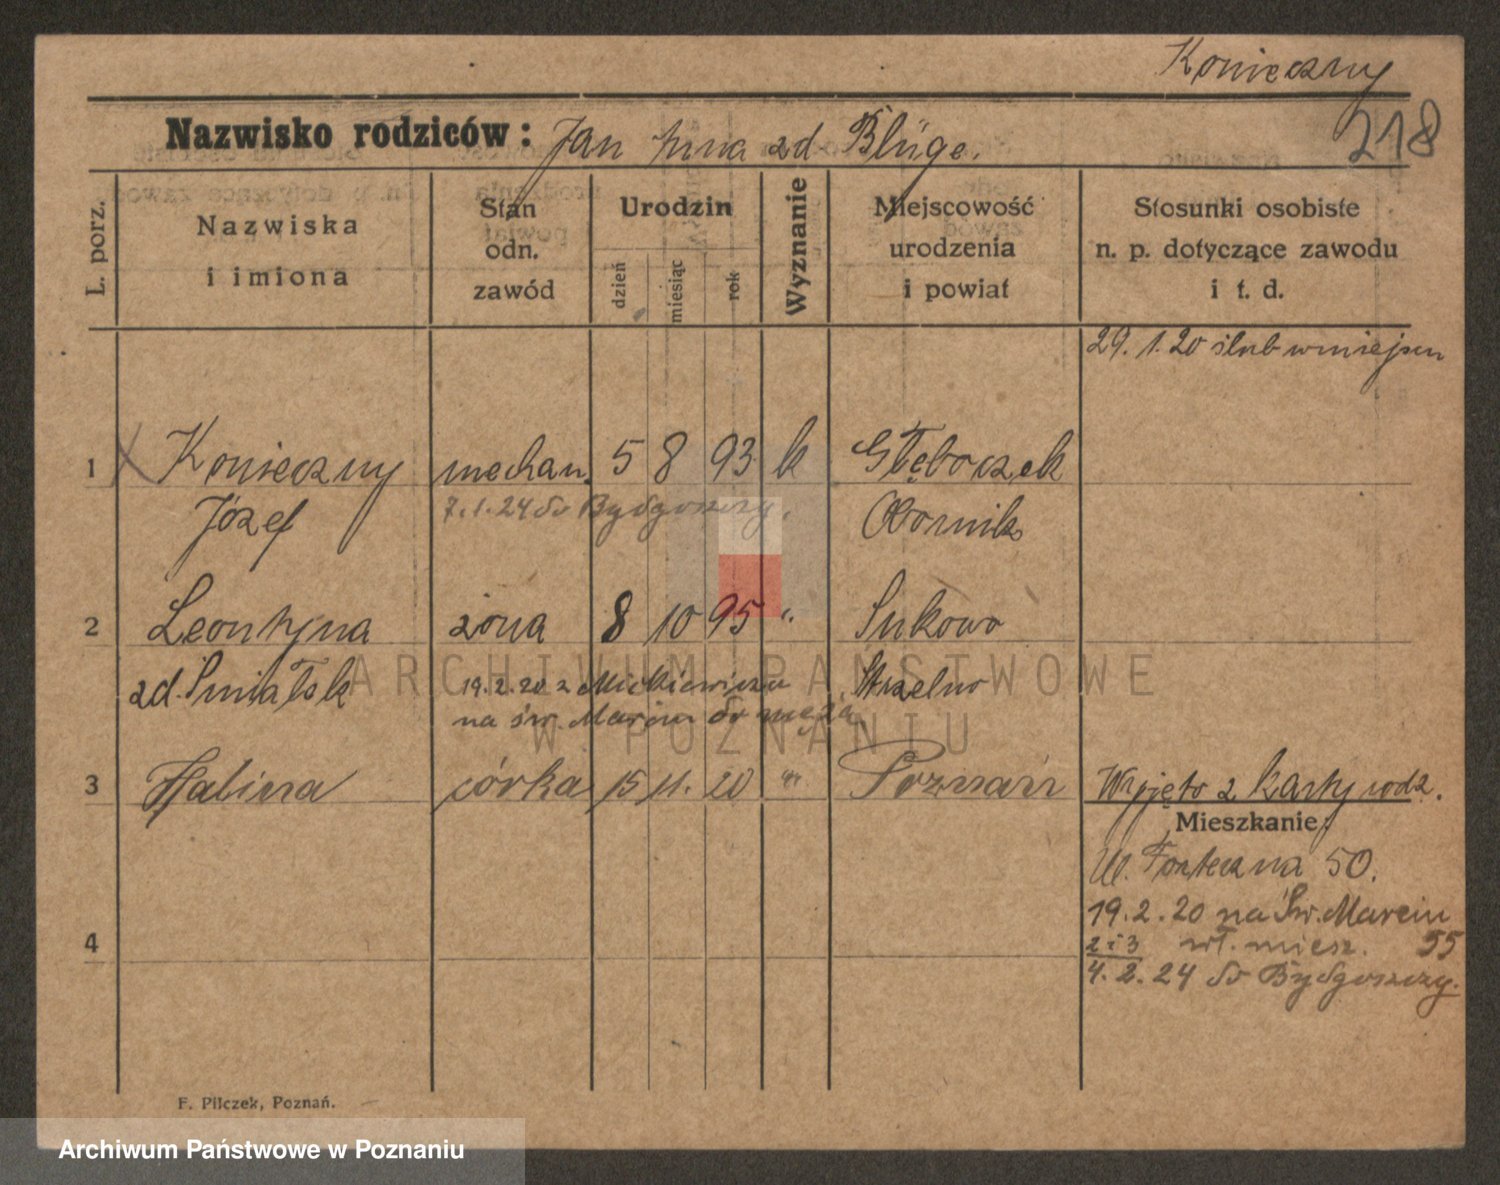 Konieczny
218
Nazwisko rodziców: Jan Anna zd. Blüge.
L. porz.
Nazwiska
i imiona
Stan
odn.
zawód
Urodzin
dzień
miesiąc
rok
Wyznanie
Miejscowość
urodzenia
i powiat
Stosunki osobiste
n. p. dotyczące zawodu
i t. d.
29. 1. 20 ślub w miejscu
1 Konieczny mechan. 5 8 93 k Głęboczek
Józef 7.1.24 do Bydgoszczy. Obornik
2 Leontyna żona 8 10 95 " Sukowo
zd. Smiałek 19.2.20 z Mickiewicza Strzelno
na św. Marcin do męża
3 Halina córka 15 11. 20 " Poznań Wzięto z karty rodz.
Mieszkanie:
Ul. Forteczna 50.
19. 2. 20 na Św. Marcin
2 i 3 wł. miesz. 55
4
4. 2. 24 do Bydgoszczy.
F. Pilczek, Poznań.
ARCHIWUM PAŃSTWOWE
W POZNANIU
Archiwum Państwowe w Poznaniu